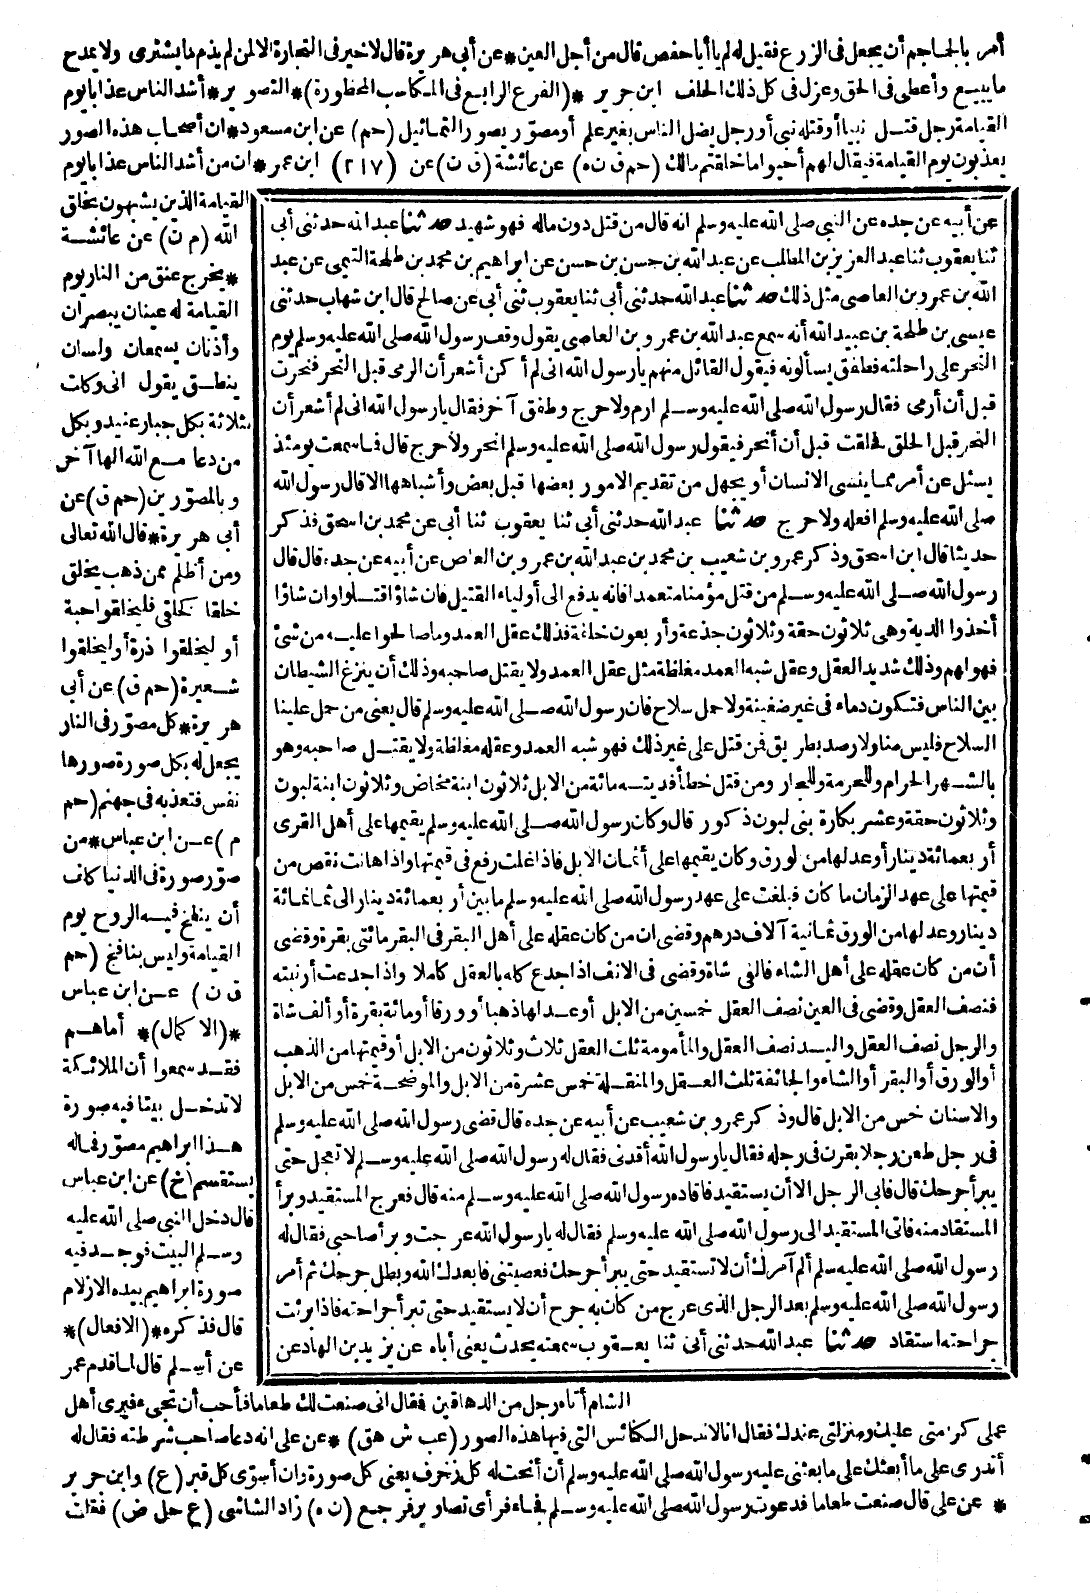 أمر بالجماجم أن يجعل فى الزرع فقيل له لم يا أبا حفص قال من أجل العين * عن أبى هريرة قال لا خير فى التجارة الا لمن لم يذم ما يشترى ولا يمدح
ما يبيع وأعطى فى الحق وعزل فى كل ذلك الحلف ابن جرير * (الفرع الرابع فى المكاسب المحظورة) * التصوير * أشد الناس عذابا يوم
القيامة رجل قتل نبيا أو قتله نبى أو رجل يضل الناس بغير علم أو مصور يصور التماثيل (حم) عن ابن مسعود * ان أصحاب هذه الصور
يعذبون يوم القيامة فيقال لهم أحيوا ما خلقتم مالك (حم ق ن ه) عن عائشة (ق ن) عن (٢١٧) ابن عمر * ان من أشد الناس عذابا يوم
القيامة الذين يشبهون بخلق
الله (م ن) عن عائشة
* يخرج عنق من النار يوم
القيامة له عينان يبصران
وأذنان يسمعان ولسان
ينطق يقول انى وكلت
بثلاثة بكل جبار عنيد وبكل
من دعا مع الله الها آخر
وبالمصورين (حم ق) عن
أبى هريرة * قال الله تعالى
ومن أظلم ممن ذهب يخلق
خلقا كخلقى فليخلقوا حبة
أو ليخلقوا ذرة أو ليخلقوا
شعيرة (حم ق) عن أبى
هريرة * كل مصور فى النار
يجعل له بكل صورة صورها
نفس فتعذبه فى جهنم (حم
م) عن ابن عباس * من
صور صورة فى الدنيا كلف
أن ينفخ فيه الروح يوم
القيامة وليس بنافخ (حم
ق ن) عن ابن عباس
* (الاكمال) * أما هم
فقد سمعوا أن الملائكة
لا تدخل بيتا فيه صورة
هذا ابراهيم مصور فما له
يستقسم (خ) عن ابن عباس
قال دخل النبى صلى الله عليه
وسلم البيت فوجد فيه
صورة ابراهيم بيده الازلام
قال فذكره * (الافعال) *
عن أسلم قال لما قدم عمر
عن أبيه عن جده عن النبى صلى الله عليه وسلم انه قال من قتل دون ماله فهو شهيد حدثنا عبد الله حدثنى أبى
ثنا يعقوب ثنا عبد العزيز بن المطلب عن عبد الله بن حسن بن حسن عن ابراهيم بن محمد بن طلحة التيمى عن عبد
الله بن عمرو بن العاصى مثل ذلك حدثنا عبد الله حدثنى أبى ثنا يعقوب ثنى أبى عن صالح قال ابن شهاب حدثنى
عيسى بن طلحة بن عبيد الله أنه سمع عبد الله بن عمرو بن العاصى يقول وقف رسول الله صلى الله عليه وسلم يوم
النحر على راحلته فطفق يسألونه فيقول القائل منهم يا رسول الله انى لم أكن أشعر أن الرمى قبل النحر فنحرت
قبل أن أرمى فقال رسول الله صلى الله عليه وسلم ارم ولا حرج وطفق آخر فقال يا رسول الله انى لم أشعر أن
النحر قبل الحلق فحلقت قبل أن أنحر فيقول رسول الله صلى الله عليه وسلم انحر ولا حرج قال فما سمعت يومئذ
يسئل عن أمر مما ينسى الانسان أو يجهل من تقديم الامور بعضها قبل بعض وأشباهها الا قال رسول الله
صلى الله عليه وسلم افعله ولا حرج حدثنا عبد الله حدثنى أبى ثنا يعقوب ثنا أبى عن محمد بن اسحق فذكر
حديثا قال ابن اسحق وذكر عمرو بن شعيب بن محمد بن عبد الله بن عمرو بن العاص عن أبيه عن جده قال قال
رسول الله صلى الله عليه وسلم من قتل مؤمنا متعمدا فانه يدفع الى أولياء القتيل فان شاؤا قتلوا وان شاؤا
أخذوا الدية وهى ثلاثون حقة وثلاثون جذعة وأربعون خلفة فذلك عقل العمد وما صالحوا عليه من شئ
فهو لهم وذلك شديد العقل وعقل شبه العمد مغلظة مثل عقل العمد ولا يقتل صاحبه وذلك أن ينزغ الشيطان
بين الناس فتكون دماء فى غير ضغينة ولا حمل سلاح فان رسول الله صلى الله عليه وسلم قال يعنى من حمل علينا
السلاح فليس منا ولا رصد بطريق فمن قتل على غير ذلك فهو شبه العمد وعقله مغلظة ولا يقتل صاحبه وهو
بالشهر الحرام وللحرمة وللجار ومن قتل خطأ فديته مائة من الابل ثلاثون ابنة مخاض وثلاثون ابنة لبون
وثلاثون حقة وعشر بكارة بنى لبون ذكور قال وكان رسول الله صلى الله عليه وسلم يقيمها على أهل القرى
أربعمائة دينار أو عدلها من لورق وكان يقيمها على أثمان الابل فاذا غلت رفع فى قيمتها واذا هانت نقص من
قيمتها على عهد الزمان ما كان فبلغت على عهد رسول الله صلى الله عليه وسلم ما بين أربعمائة دينار الى ثمانمائة
دينار وعدلها من الورق ثمانية آلاف درهم وقضى ان من كان عقله على أهل البقر فى البقر مائتى بقرة وقضى
أن من كان عقله على أهل الشاء فالفى شاة وقضى فى الانف اذا جدع كله بالعقل كاملا واذا جدعت أرنبته
فنصف العقل وقضى فى العين نصف العقل خمسين من الابل أو عدلها ذهبا أو ورقا أو مائة بقرة أو ألف شاة
والرجل نصف العقل واليد نصف العقل والمأمومة ثلث العقل ثلاث وثلاثون من الابل أو قيمتها من الذهب
أو الورق أو البقر أو الشاء والجائفة ثلث العقل والمنقلة خمس عشرة من الابل والموضحة خمس من الابل
والاسنان خمس من الابل قال وذكر عمرو بن شعيب عن أبيه عن جده قال قضى رسول الله صلى الله عليه وسلم
فى رجل طعن رجلا بقرن فى رجله فقال يا رسول الله أقدنى فقال له رسول الله صلى الله عليه وسلم لا تعجل حتى
يبرأ جرحك قال فابى الرجل الا أن يستقيد فاقاده رسول الله صلى الله عليه وسلم منه قال فعرج المستقيد وبرأ
المستقاد منه فاتى المستقيد الى رسول الله صلى الله عليه وسلم فقال له يا رسول الله عرجت وبرأ صاحبى فقال له
رسول الله صلى الله عليه وسلم ألم آمرك أن لا تستقيد حتى يبرأ جرحك فعصيتنى فابعدك الله وبطل جرحك ثم أمر
رسول الله صلى الله عليه وسلم بعد الرجل الذى عرج من كان به جرح أن لا يستقيد حتى تبرأ جراحته فاذا برئت
جراحته استقاد حدثنا عبد الله حدثنى أبى ثنا يعقوب سمعته يحدث يعنى أباه عن يزيد بن الهاد عن
الشام أتاه رجل من الدهاقين فقال انى صنعت لك طعاما فأحب أن تجىء فيرى أهل
عملى كرامتى عليك ومنزلتى عندك فقال انا لا ندخل الكنائس التى فيها هذه الصور (عب ش هق) * عن على انه دعا صاحب شرطته فقال له
أتدرى على ما أبعثك على ما بعثنى عليه رسول الله صلى الله عليه وسلم أن أنحت له كل زخرف يعنى كل صورة وان أسوى كل قبر (ع) وابن جرير
* عن على قال صنعت طعاما فدعوت رسول الله صلى الله عليه وسلم فجاء فرأى تصاوير فرجع (ن ه) زاد الشاشى (ع حل ض) فقلت